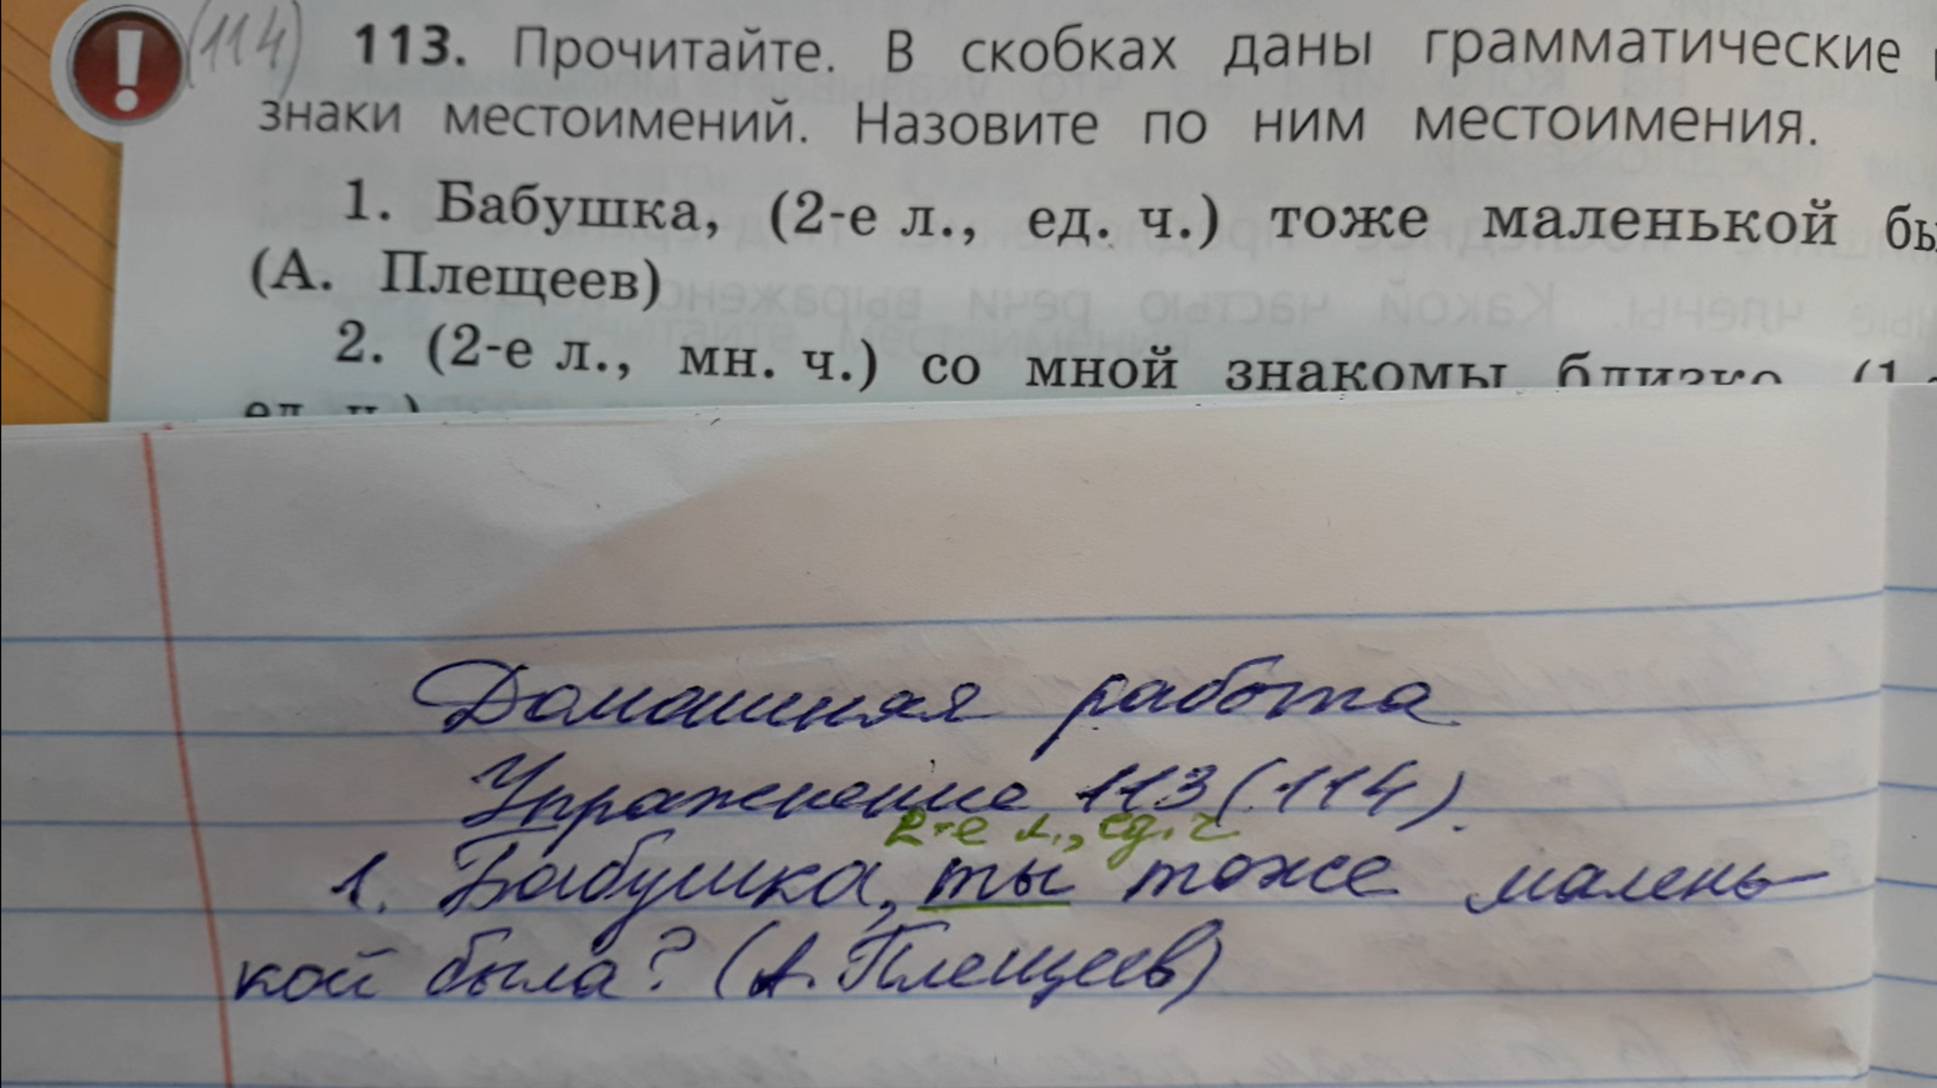 (114) 113. Прочитайте. В скобках даны грамматические
знаки местоимений. Назовите по ним местоимения.
1. Бабушка, (2-е л., ед. ч.) тоже маленькой бы
(А. Плещеев)
2. (2-е л., мн. ч.) со мной знакомы близко (1
ед. ч.)
Домашняя работа
Упражнение 113 (114).
2-е л., ед. ч
1. Бабушка, ты тоже малень-
кой была? (А. Плещеев)